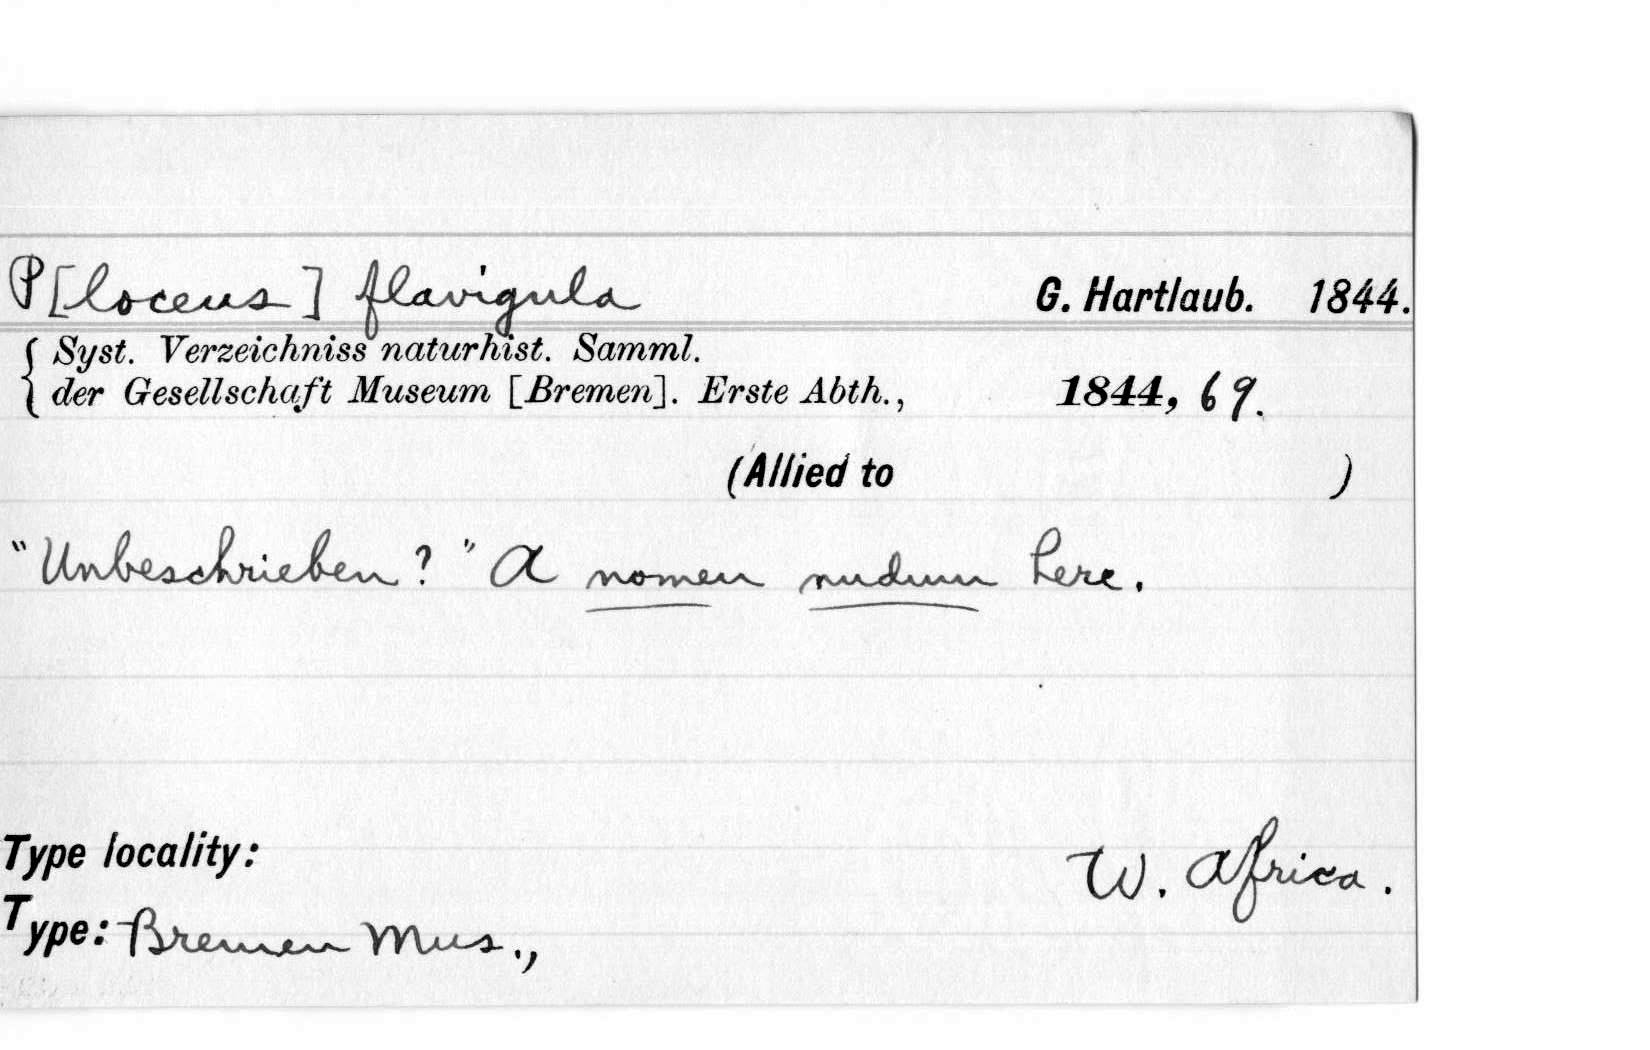 P[loceus] flavigula G. Hartlaub. 1844.
Syst. Verzeichniss naturhist. Samml.
der Gesellschaft Museum [Bremen]. Erste Abth., 1844, 69.
(Allied to )
"Unbeschrieben?" A nomen nudum here.
Type locality: W. Africa.
Type: Bremen Mus.,